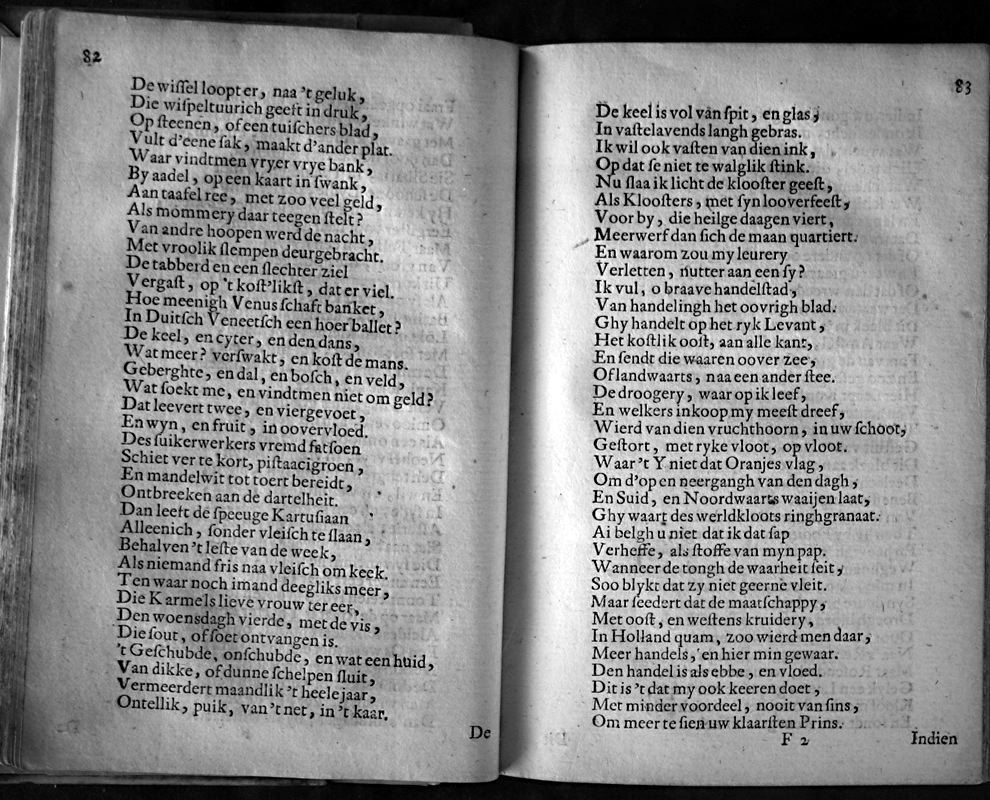 82
De wiſſel loopt er, naa 't geluk,
Die wiſpeltuurich geeft in druk,
Op ſteenen, of een tuiſchers blad,
Vult d'eene ſak, maakt d'ander plat.
Waar vindtmen vryer vrye bank,
By aadel, op een kaart in ſwank,
Aan taafel ree, met zoo veel geld,
Als mommery daar teegen ſtelt?
Van andre hoopen werd de nacht,
Met vroolik ſlempen deurgebracht.
De tabberd en een ſlechter ziel
Vergaſt, op 't koſt'likſt, dat er viel.
Hoe meenigh Venus ſchaft banket,
In Duitſch Veneetſch een hoer ballet?
De keel, en cyter, en den dans,
Wat meer? verſwakt, en koſt de mans.
Geberghte, en dal, en boſch, en veld,
Wat ſoekt me, en vindtmen niet om geld?
Dat leevert twee, en viergevoet,
En wyn, en fruit, in oovervloed.
Des ſuikerwerkers vremd fatſoen
Schiet ver te kort, piſtaacigroen,
En mandelwit tot toert bereidt,
Ontbreeken aan de dartelheit.
Dan leeft de ſpeeuge Kartuſiaan
Alleenich, ſonder vleiſch te ſlaan,
Behalven 't leſte van de week,
Als niemand fris naa vleiſch om keek.
Ten waar noch imand deegliks meer,
Die Karmels lieve vrouw ter eer,
Den woensdagh vierde, met de vis,
Die ſout, of ſoet ontvangen is.
't Geſchubde, onſchubde, en wat een huid,
Van dikke, of dunne ſchelpen ſluit,
Vermeerdert maandlik 't heele jaar,
Ontellik, puik, van 't net, in 't kaar.
De
83
De keel is vol van ſpit, en glas,
In vaſtelavends langh gebras.
Ik wil ook vaſten van dien ink,
Op dat ſe niet te walglik ſtink.
Nu ſlaa ik licht de klooſter geeſt,
Als Klooſters, met ſyn looverfeeſt,
Voor by, die heilge daagen viert,
Meerwerf dan ſich de maan quartiert.
En waarom zou my leurery
Verletten, nutter aan een ſy?
Ik vul, o braave handelſtad,
Van handelingh het oovrigh blad.
Ghy handelt op het ryk Levant,
Het koſtlik ooſt, aan alle kant,
En ſendt die waaren oover zee,
Of landwaarts, naa een ander ſtee.
De droogery, waar op ik leef,
En welkers inkoop my meeſt dreef,
Wierd van dien vruchthoorn, in uw ſchoot,
Geſtort, met ryke vloot, op vloot.
Waar 't Y niet dat Oranjes vlag,
Om d'op en neergangh van den dagh,
En Suid, en Noordwaarts waaijen laat,
Ghy waart des werldkloots ringhgranaat.
Ai belgh u niet dat ik dat ſap
Verheffe, als ſtoffe van myn pap.
Wanneer de tongh de waarheit ſeit,
Soo blykt dat zy niet geerne vleit.
Maar ſeedert dat de maatſchappy,
Met ooſt, en weſtens kruidery,
In Holland quam, zoo wierd men daar,
Meer handels, en hier min gewaar.
Den handel is als ebbe, en vloed.
Dit is 't dat my ook keeren doet,
Met minder voordeel, nooit van ſins,
Om meer te ſien uw klaarſten Prins.
F 2
Indien